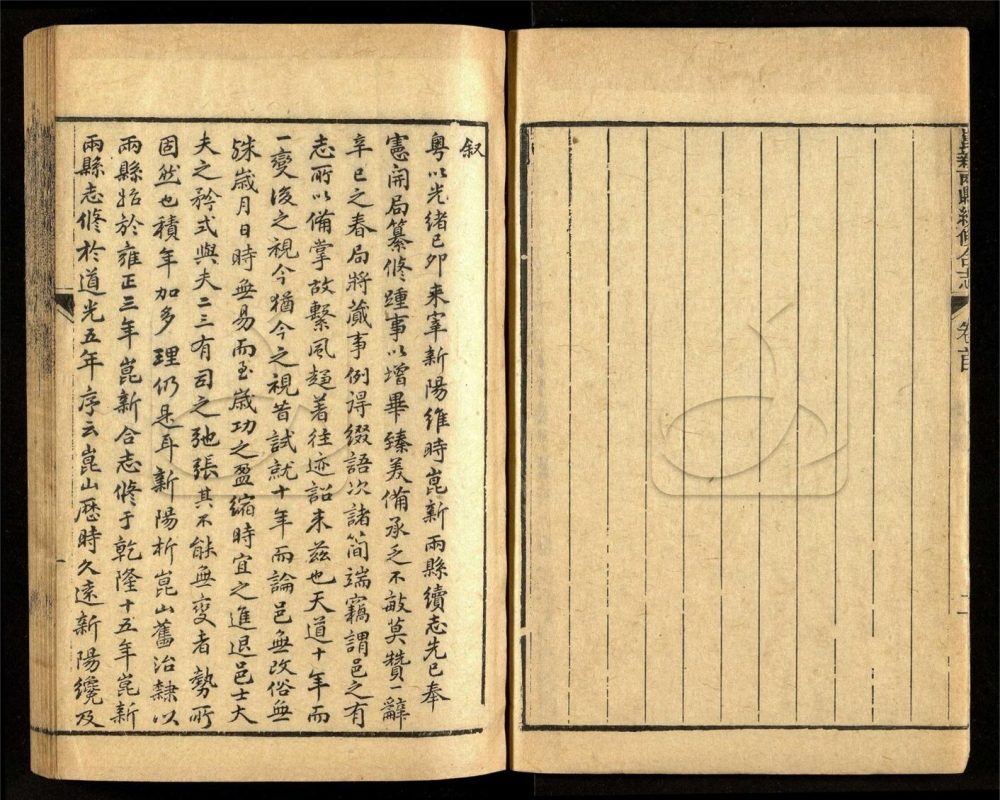 崑新兩縣續修合志
卷首
叙
粤以光緒己卯來宰新陽維時崑新兩縣續志先已奉
憲開局纂修踵事以增畢臻美備承乏不敏莫贊一辭
辛巳之春局將蕆事例得綴語次諸簡端竊謂邑之有
志所以備掌故繫風趨着往迹詔来兹也天道十年而
一變後之視今猶今之視昔試就十年而論邑無改俗無
殊歲月日時無易而至歲功之盈縮時宜之進退邑士大
夫之矜式與夫二三有司之弛張其不能無變者勢所
固然也積年加多理仍是耳新陽析崑山舊治隸以
兩縣始於雍正三年崑新合志修于乾隆十五年崑新
兩縣志修於道光五年序云崑山歷時久遠新陽纔及